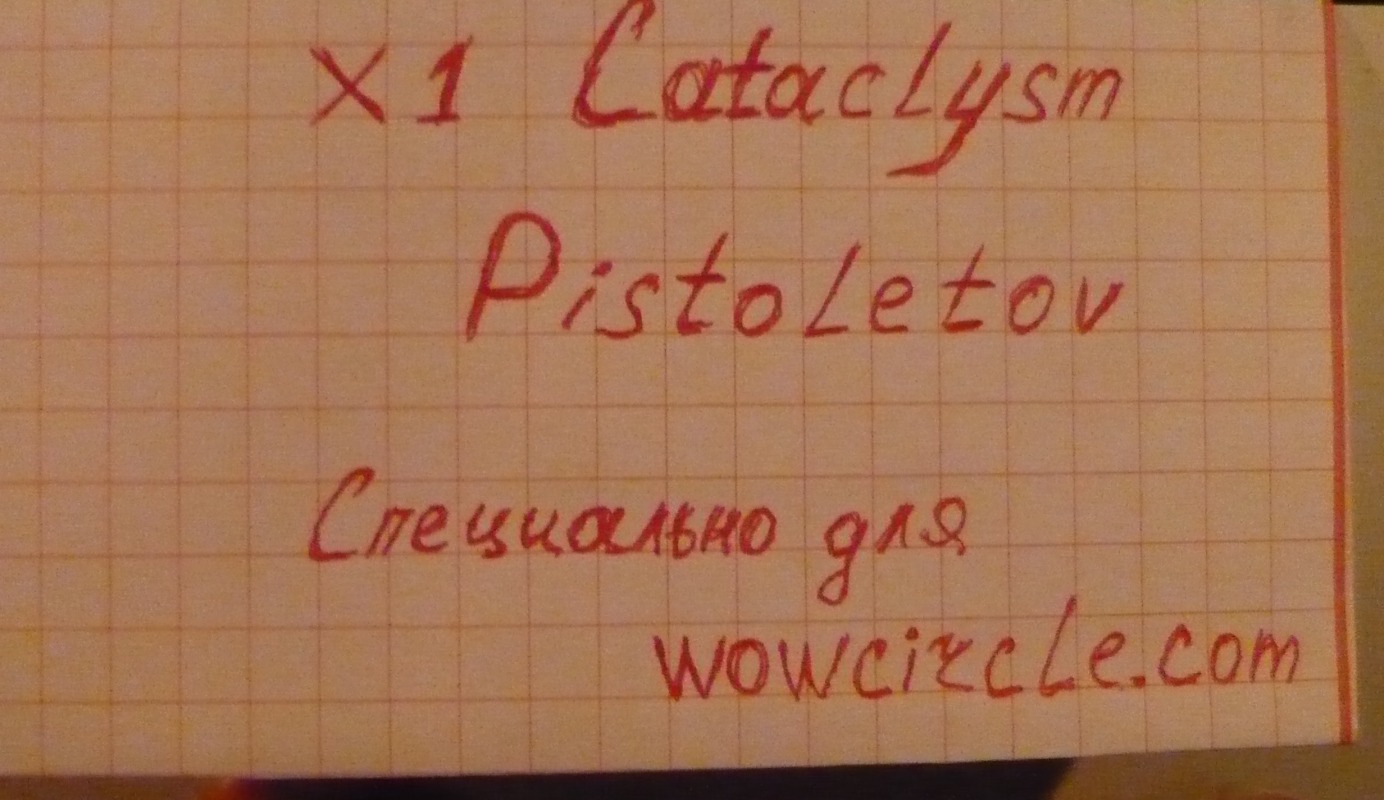 x1 Cataclysm
Pistoletov
Специально для
wowcircle.com